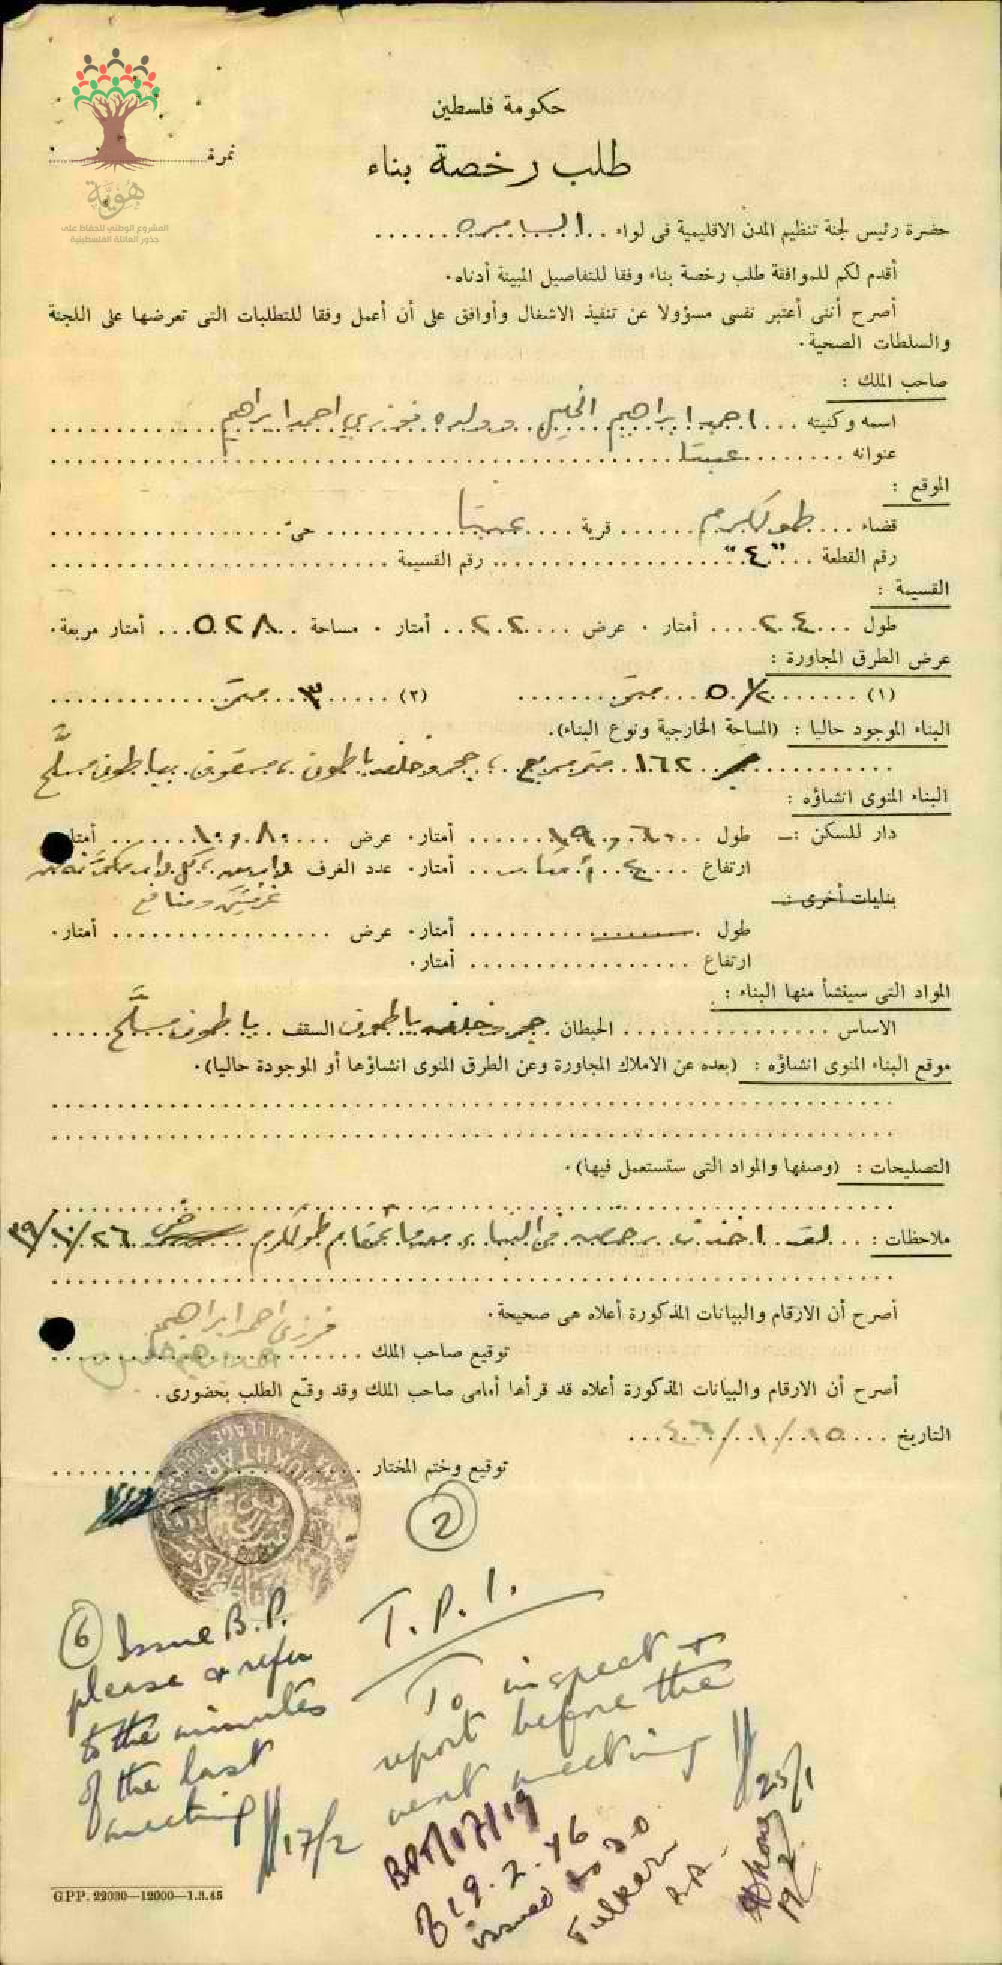 هوية
المشروع الوطني للحفاظ على
جذور العائلة الفلسطينية
حكومة فلسطين
نمرة
طلب رخصة بناء
حضرة رئيس لجنة تنظيم المدن الاقليمية فى لواء السامره
أقدم لكم للموافقة طلب رخصة بناء وفقا للتفاصيل المبينة أدناه.
أصرح أننى أعتبر نفسى مسؤولا عن تنفيذ الاشغال وأوافق على أن أعمل وفقا للتطلبات التى تعرضها على اللجنة
والسلطات الصحية.
صاحب الملك :
اسمه وكنيته احمد ابراهيم الخليل وولده فوزي احمد ابراهيم
عنوانه عنبتا
الموقع :
قضاء طولكرم قرية عنبتا حىّ
رقم القطعة "٤" رقم القسيمة
القسيمة :
طول ٢٤ أمتار . عرض ٢٢ أمتار . مساحة ٥٢٨ أمتار مربعة.
عرض الطرق المجاورة :
(١) ٥ ١/٢ متر (٢) ٣ متر
البناء الموجود حاليا : (المساحة الخارجية ونوع البناء).
١٦٢ متر مربع ، حجر وخلفه باطون ، مسقوف بباطون مسلَّح
البناء المنوى انشاؤه :
دار للسكن :– طول ١٩,٦٠ أمتار. عرض ١٠,٨٠ أمتار
ارتفاع ٤ أمتار. عدد الغرف
غرفتين ومنافع
بنايات أخرى :–
طول أمتار. عرض أمتار.
ارتفاع أمتار.
المواد التى سينشأ منها البناء :
الاساس الحيطان حجر وخلفه باطون السقف باطون مسلَّح
موقع البناء المنوى انشاؤه : (بعده عن الاملاك المجاورة وعن الطرق المنوى انشاؤها أو الموجودة حاليا).
التصليحات : (وصفها والمواد التى ستستعمل فيها).
ملاحظات : لقد اخذت رخصة فى البناء من قائمقام طولكرم ٢٦/١٠/٣٩
أصرح أن الارقام والبيانات المذكورة أعلاه هى صحيحة.
فوزي احمد ابراهيم
توقيع صاحب الملك
أصرح أن الارقام والبيانات المذكورة أعلاه قد قرأها أمامى صاحب الملك وقد وقّع الطلب بحضورى.
التاريخ ١٥/١/٤٦
توقيع وختم المختار
MUKHTAR
2
T.P.I.
To inspect &
report before the
next meeting
25/1
6 Issue B.P.
please & refer
to the minutes
of the last
meeting
17/2
BP/17/19
of 19.2.46
issued to D.O
Tulkarm
19/2
GPP. 22030—12000—1.3.45